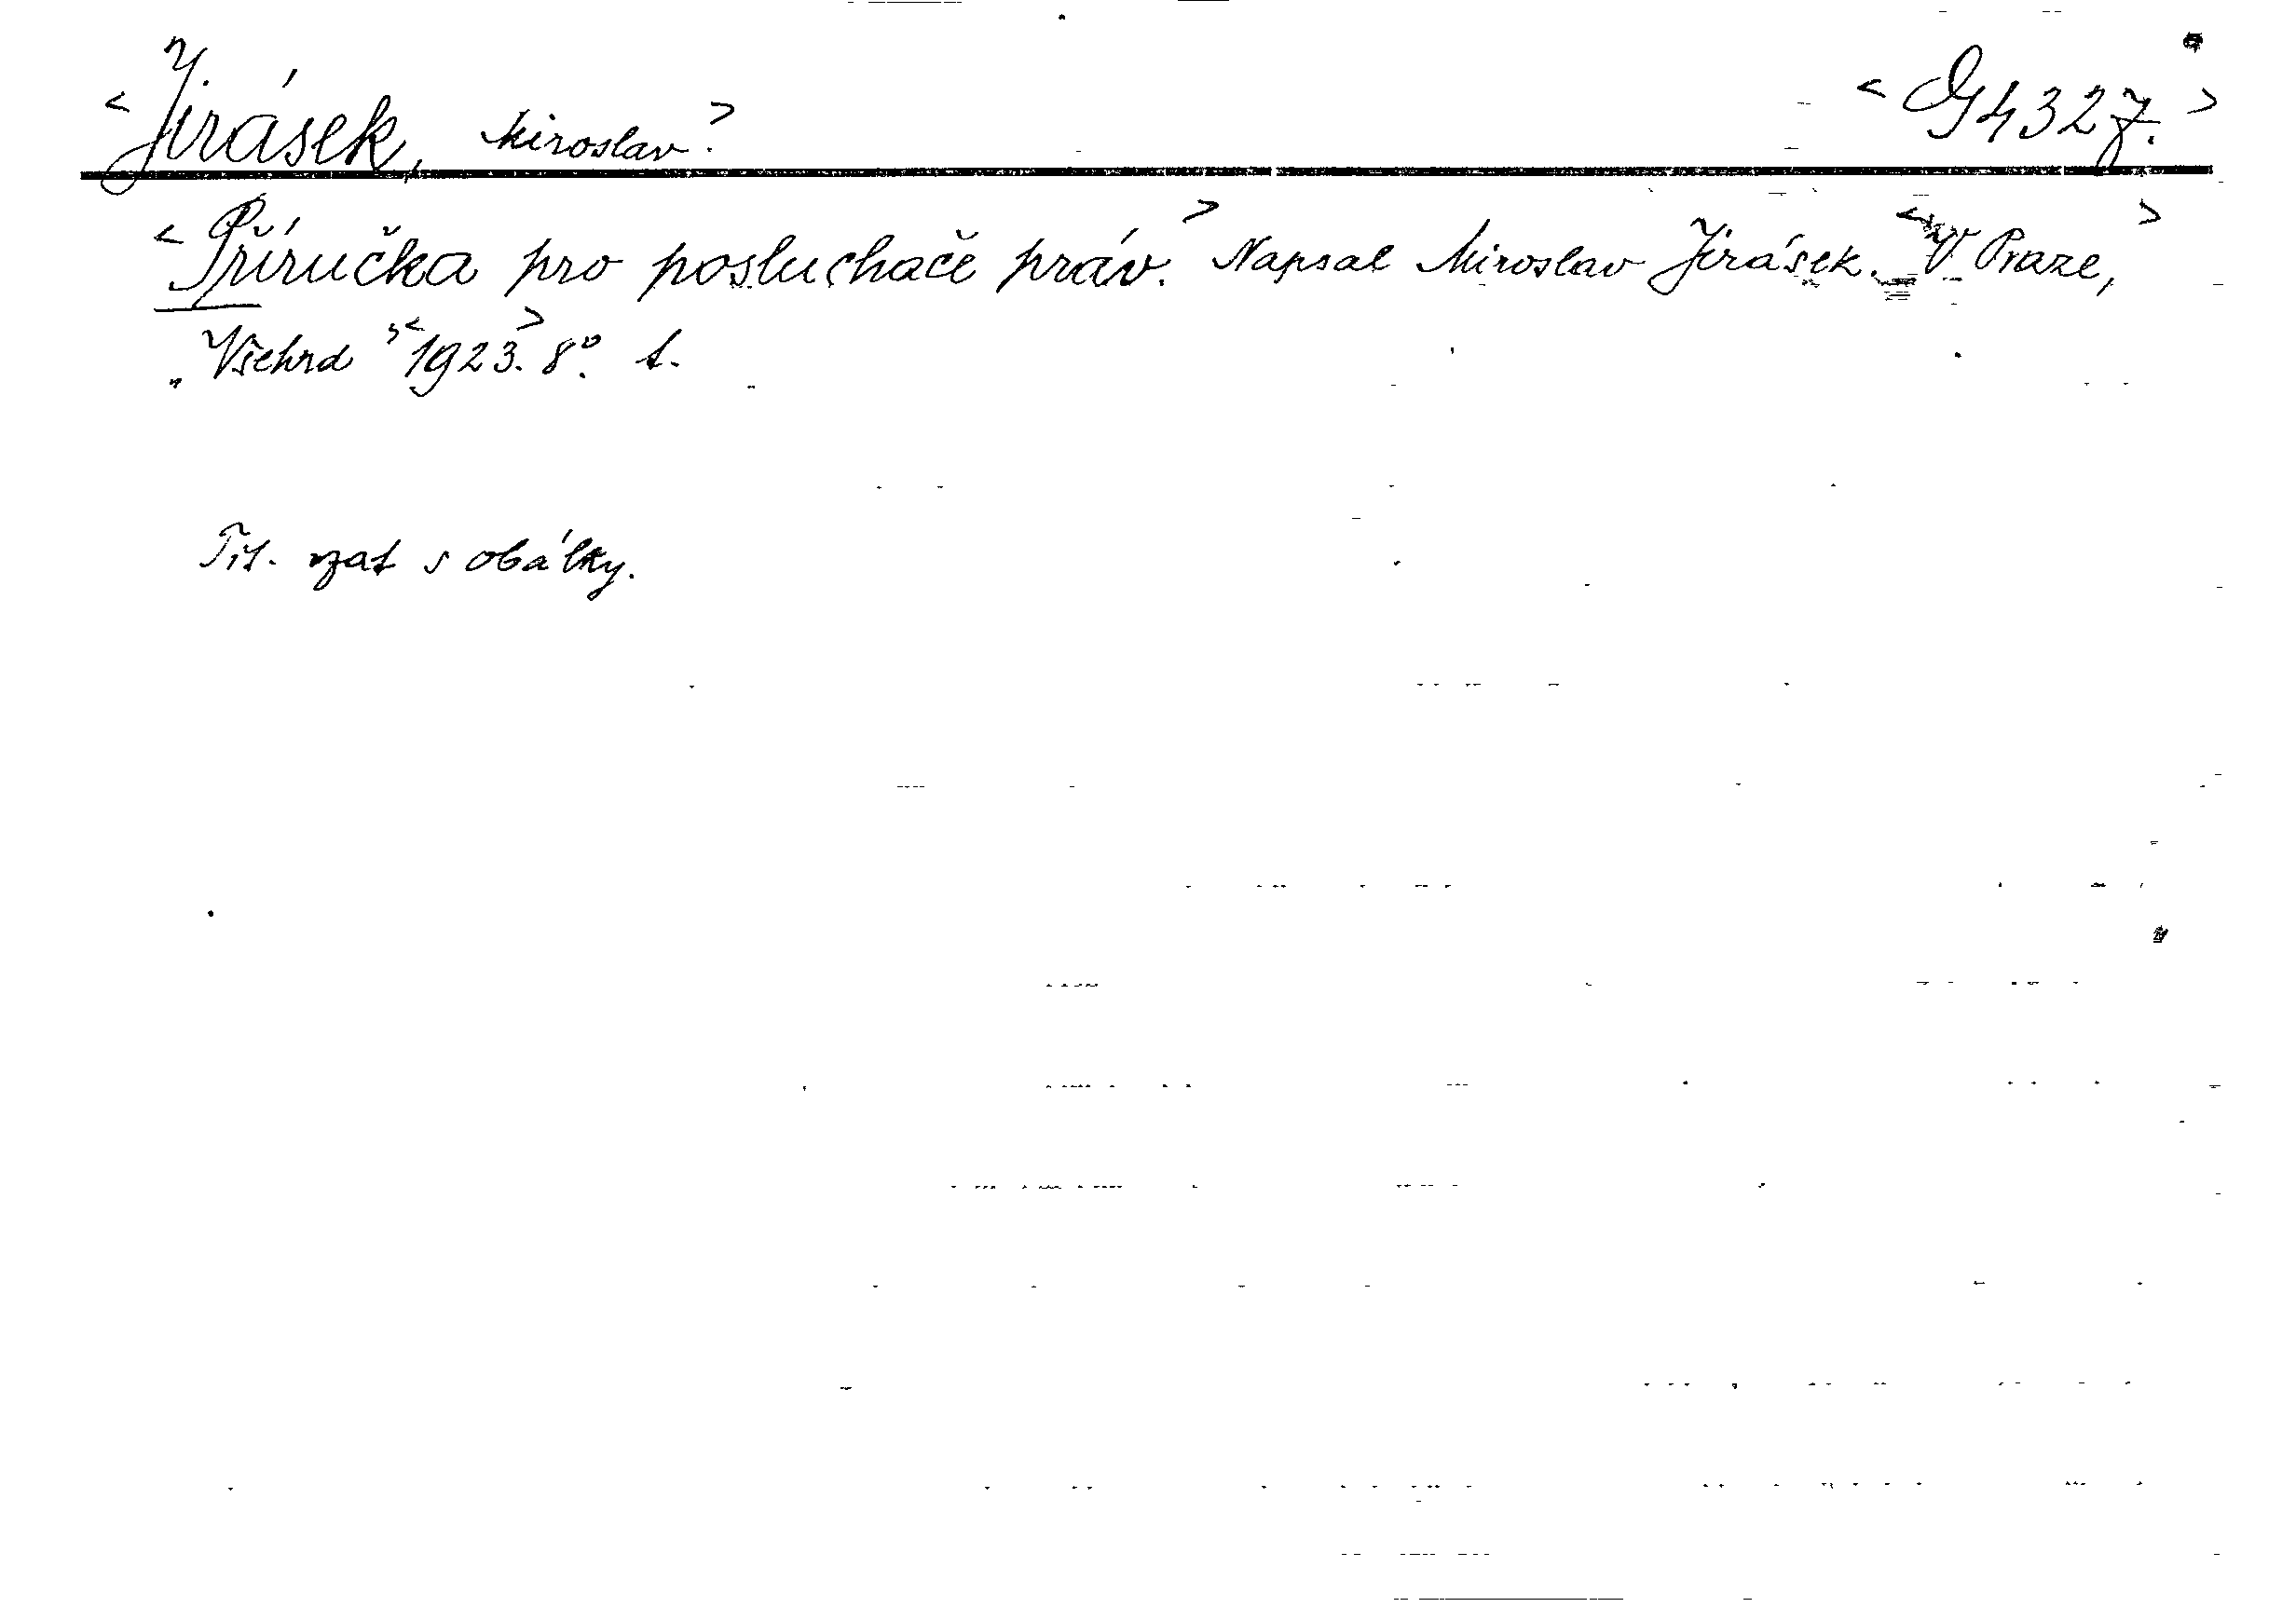 <Jirásek, Miroslav.> <G 4327.>
<Příručka pro posluchače práv.> Napsal Miroslav Jirásek. <V Praze,>
„Všehrd" <1923.> 8°. t.
Tit. vzat s obálky.